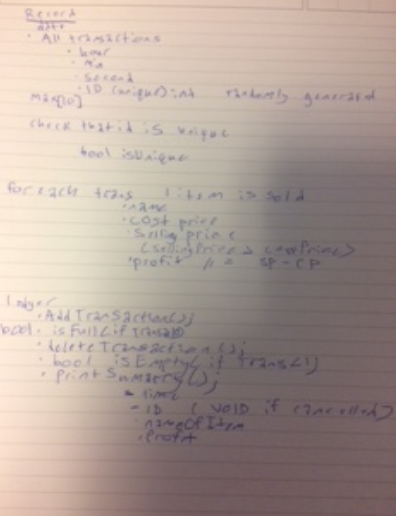 Record
data
· All transactions
· hour
· Min
· Second
· ID (unique): int randomly generated
Max[10]
check that id is unique
bool isUnique
for each trans 1 item is sold
· name
· cost price
· Selling price
(sellingPrice > costPrice)
· profit // = SP - CP
ledger
· AddTransaction();
bool · isFull(if
· deleteTransaction();
· bool isEmpty( if Trans<1)
· printSummary();
- time
- ID ( VOID if cancelled)
· nameOfItem
· Profit